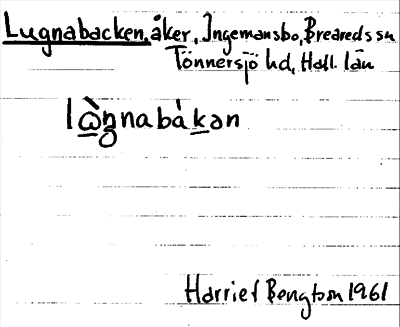 Lugnabacken, åker, Ingemansbo, Breareds sn
Tönnersjö hd, Hall. län
lὼŋnabàkən
Harriet Bengtson 1961